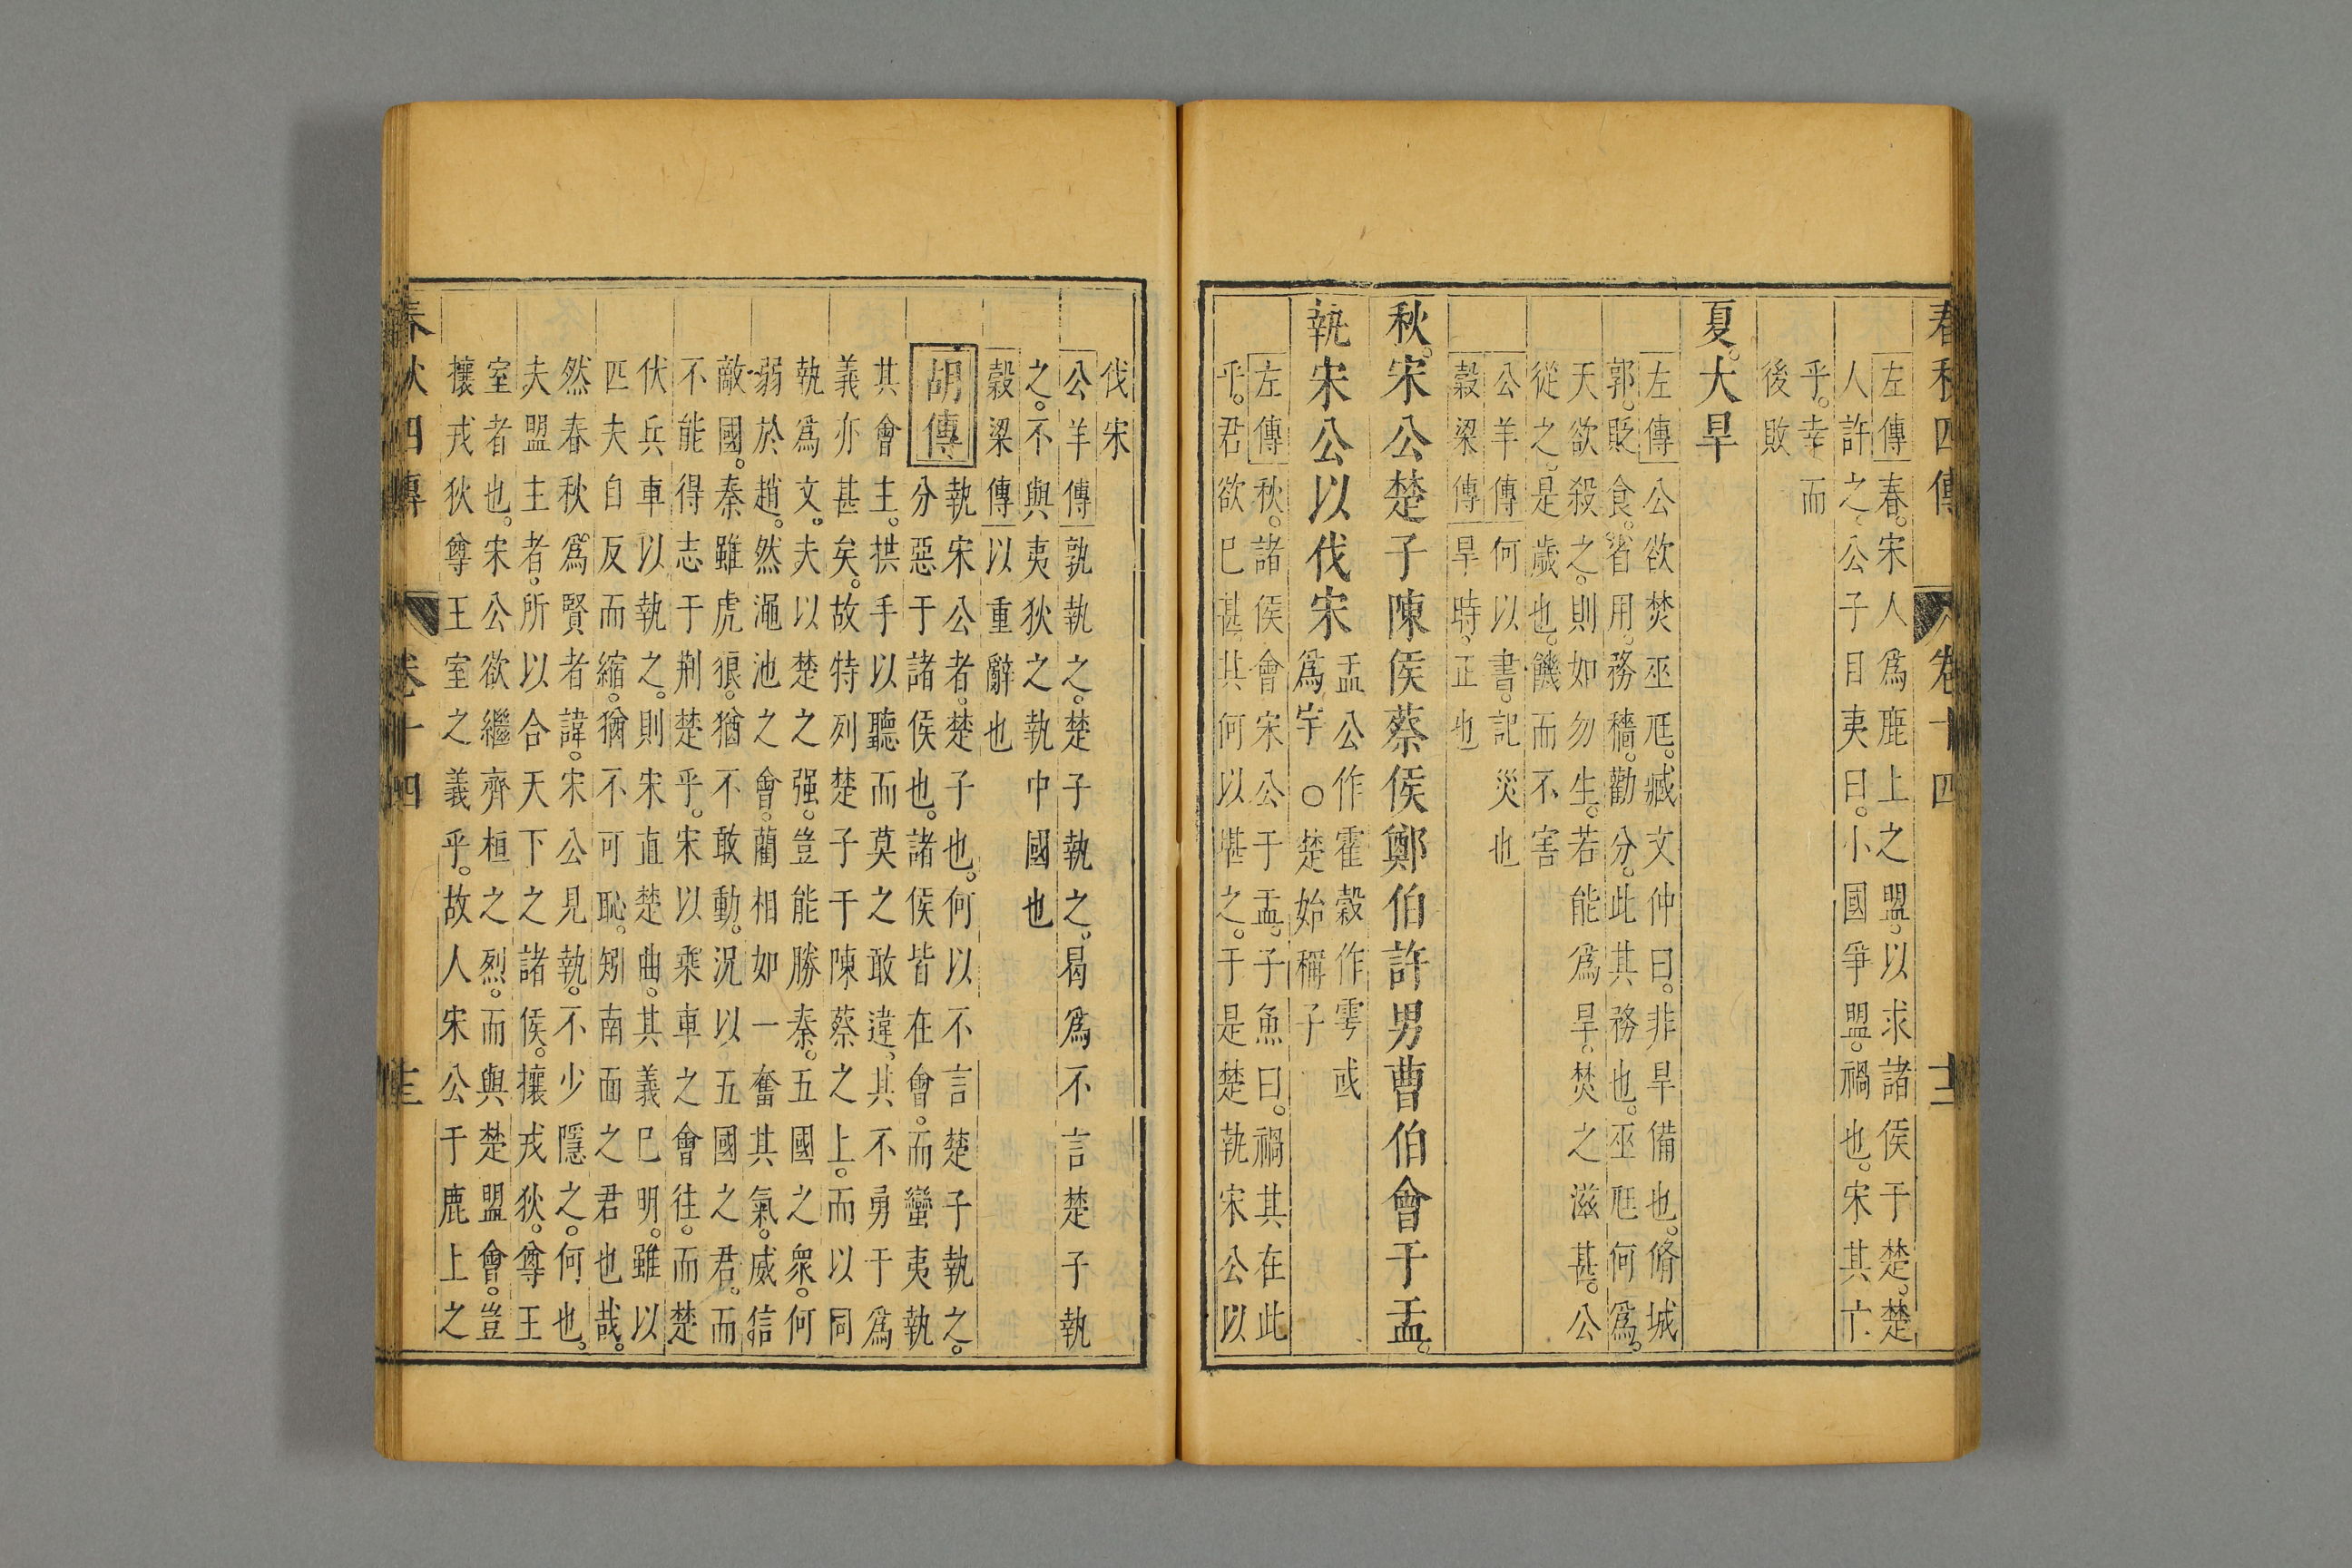 春秋四傳 卷十四 十三
左傳春。宋人爲鹿上之盟。以求諸侯于楚。楚
人許之。公子目夷曰。小國爭盟。禍也。宋其亡
乎。幸而
後敗
夏。大旱
左傳公欲焚巫尫。臧文仲曰。非旱備也。脩城
郭。貶食。省用。務穡。勸分。此其務也。巫尫何爲。
天欲殺之。則如勿生。若能爲旱。焚之滋甚。公
從之。是歲也。饑而不害
公羊傳何以書。記災也
穀梁傳旱時。正也
秋。宋公楚子陳侯蔡侯鄭伯許男曹伯會于盂。
執宋公以伐宋
盂公作霍穀作雩或
爲宇○楚始稱子
左傳秋。諸侯會宋公于盂。子魚曰。禍其在此
乎。君欲已甚。其何以堪之。于是楚執宋公以
伐宋
公羊傳孰執之。楚子執之。曷爲不言楚子執
之。不與夷狄之執中國也
穀梁傳以重辭也
胡傳
執宋公者。楚子也。何以不言楚子執之。
分惡于諸侯也。諸侯皆在會。而蠻夷執
其會主。拱手以聽而莫之敢違。其不勇于爲
義亦甚矣。故特列楚子于陳蔡之上。而以同
執爲文。夫以楚之强。豈能勝秦。五國之衆。何
弱於趙。然澠池之會。藺相如一奮其氣。威信
敵國。秦雖虎狼。猶不敢動。況以五國之君。而
不能得志于荆楚乎。宋以乘車之會往。而楚
伏兵車以執之。則宋直楚曲。其義已明。雖以
匹夫自反而縮。猶不可恥。矧南面之君也哉。
然春秋爲賢者諱。宋公見執。不少隱之。何也。
夫盟主者。所以合天下之諸侯。攘戎狄。尊王
室者也。宋公欲繼齊桓之烈。而與楚盟會。豈
攘戎狄尊王室之義乎。故人宋公于鹿上之
春秋四傳 卷十四 十三